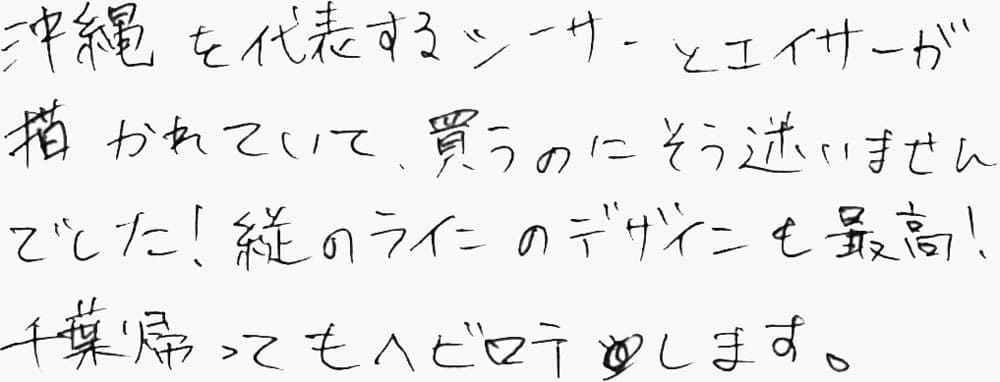 沖縄を代表するシーサーとエイサーが
描かれていて、買うのにそう迷いません
でした！縦のラインのデザインも最高！
千葉帰ってもヘビロテします。